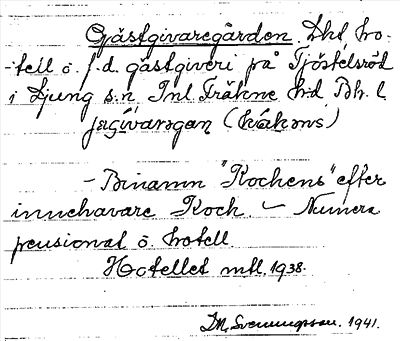 Gästgivaregården. Dht ho-
-tell o. f.d. gästgiveri på Tjöstelsröd
i Ljung s:n Inl Fräkne h:d Bh. l.
jɛʃívarəgan (håkons)
- Binamn "Kochens" efter
innehavare Koch. - Numera
pensionat o. hotell.
Hotellet mtl. 1938.
D.M. Svenungsson. 1941.